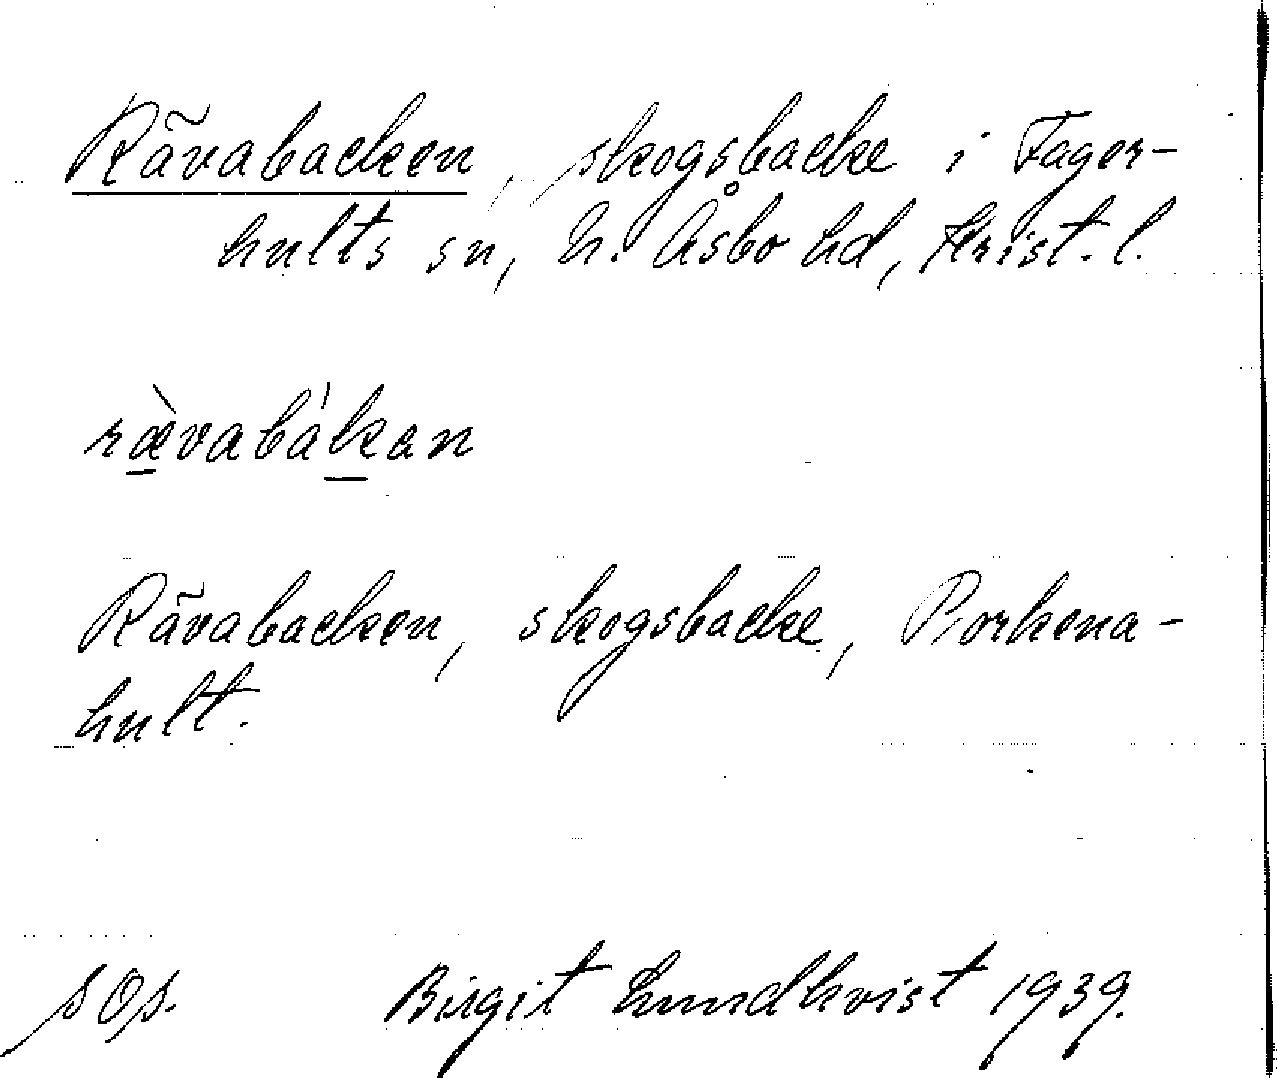 Rävabacken, skogsbacke i Fager-
hults sn, N. Åsbo hd, Krist. l.
rævabákan
Rävabacken, skogsbacke, Porkena-
hult.
Birgit Lundkvist 1939.